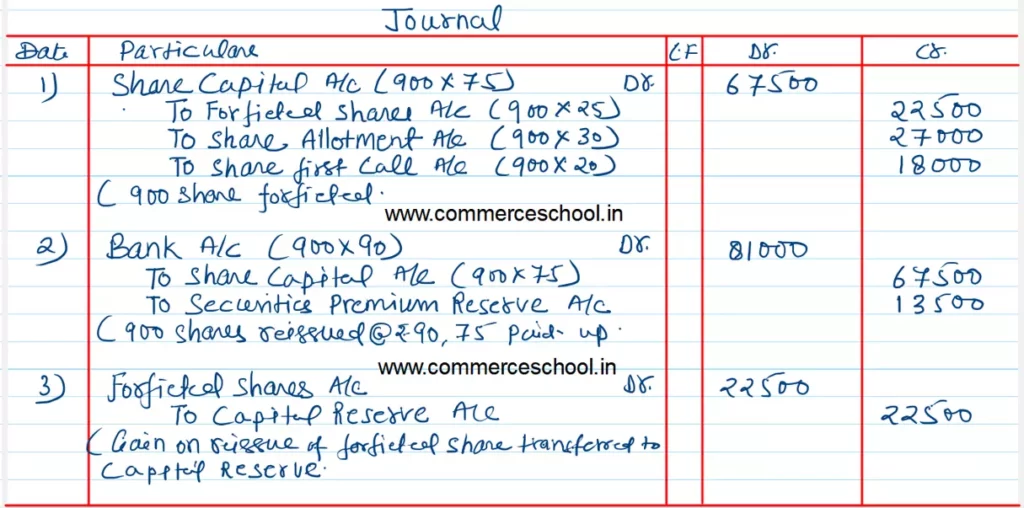 Journal
Date Particulars L.F Dr. Cr.
1) Share Capital A/c (900 X 75) Dr. 67500
To Forfieted shares A/c (900 X 25) 22500
To Share Allotment A/c (900 X 30) 27000
To Share first Call A/c (900 X 20) 18000
( 900 Share forfieted.
www.commerceschool.in
2) Bank A/c (900 X 90) Dr. 81000
To Share Capital A/c (900 X 75) 67500
To Securities Premium Reserve A/c 13500
( 900 Shares reissued @ ₹90, 75 paid-up.
www.commerceschool.in
3) Forfieted Shares A/c Dr. 22500
To Capital Reserve A/c 22500
( Gain on reissue of forfieted share transferred to
Capital Reserve.